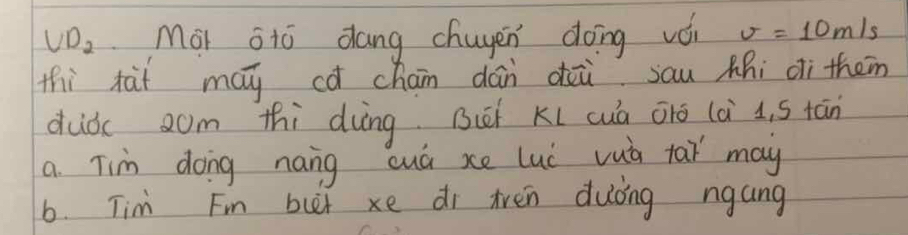 VD2. Một ôtô đang chuyển động với v = 10m/s
thì tắt máy cđ chậm dần đều. sau khi đi thêm
được 20m thì dừng. Biết KL của ôtô là 1,5 tấn
a. Tìm động năng của xe lúc vừa tắt máy
b. Tìm Fm biết xe đi trên đường ngang